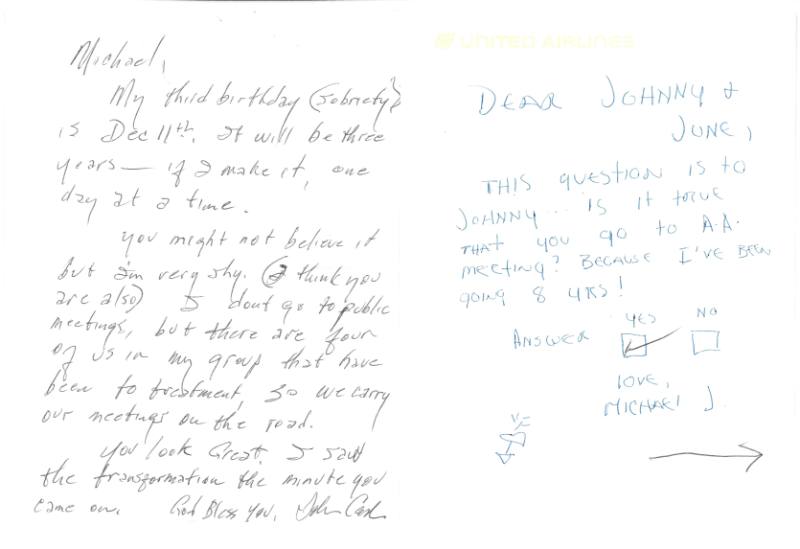 Michael,
My third birthday (sobriety)
is Dec 11th. It will be three
years — if I make it, one
day at a time.
You might not believe it
but I'm very shy. (I think you
are also) I dont go to public
meetings, but there are four
of us in my group that have
been to treatment, so we carry
our meetings on the road.
You look Great. I saw
the transformation the minute you
came on. God Bless You, John Cash
UNITED AIRLINES
DEAR JOHNNY &
JUNE,
THIS QUESTION IS TO
JOHNNY... IS IT TRUE
THAT YOU GO TO A.A.
MEETING? BECAUSE I'VE BEEN
GOING 8 YRS!
YES NO
ANSWER
LOVE,
MICHAEL J.